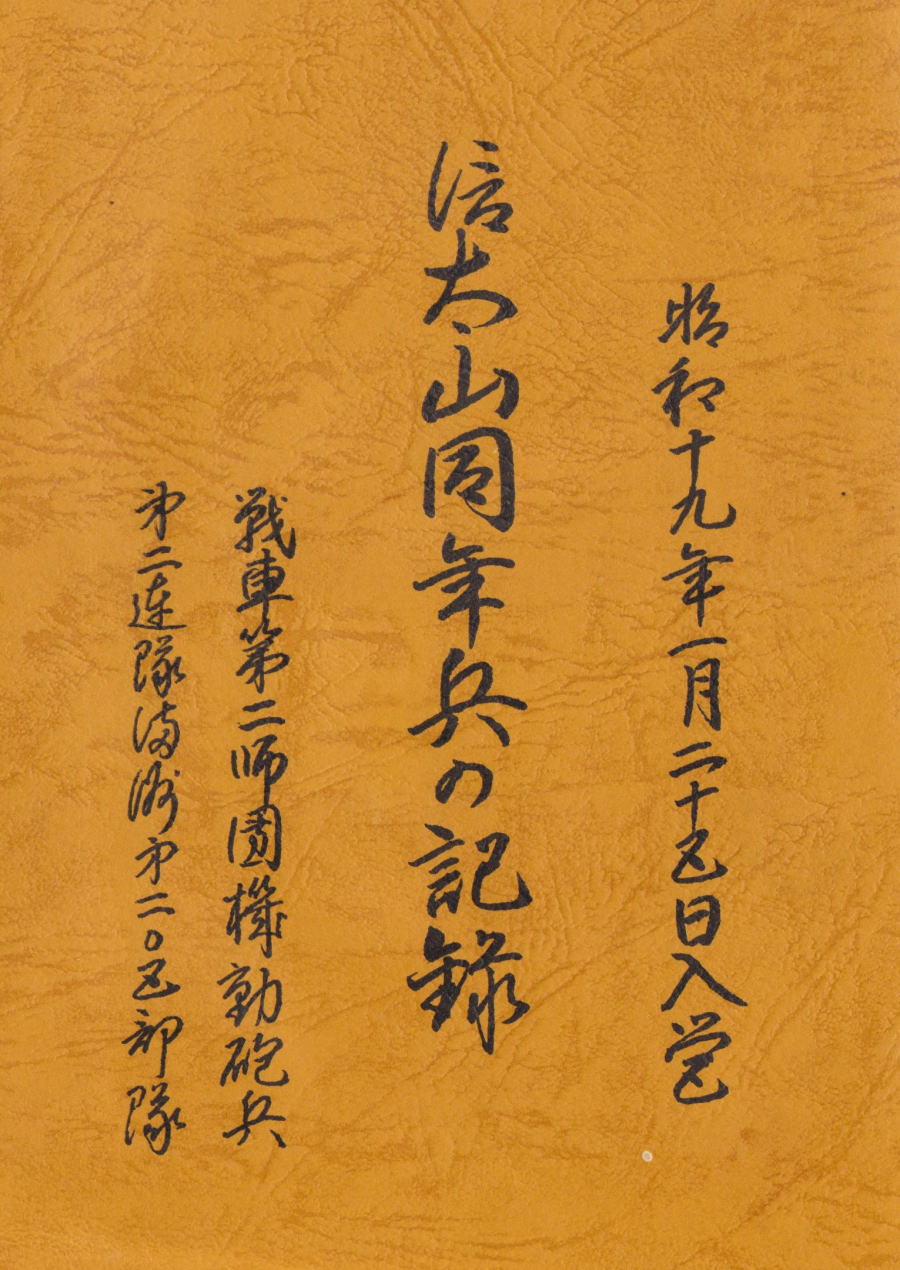 昭和十九年一月二十五日入営
信太山同年兵の記録
戦車第二師団機動砲兵
第二連隊満洲第二〇五部隊